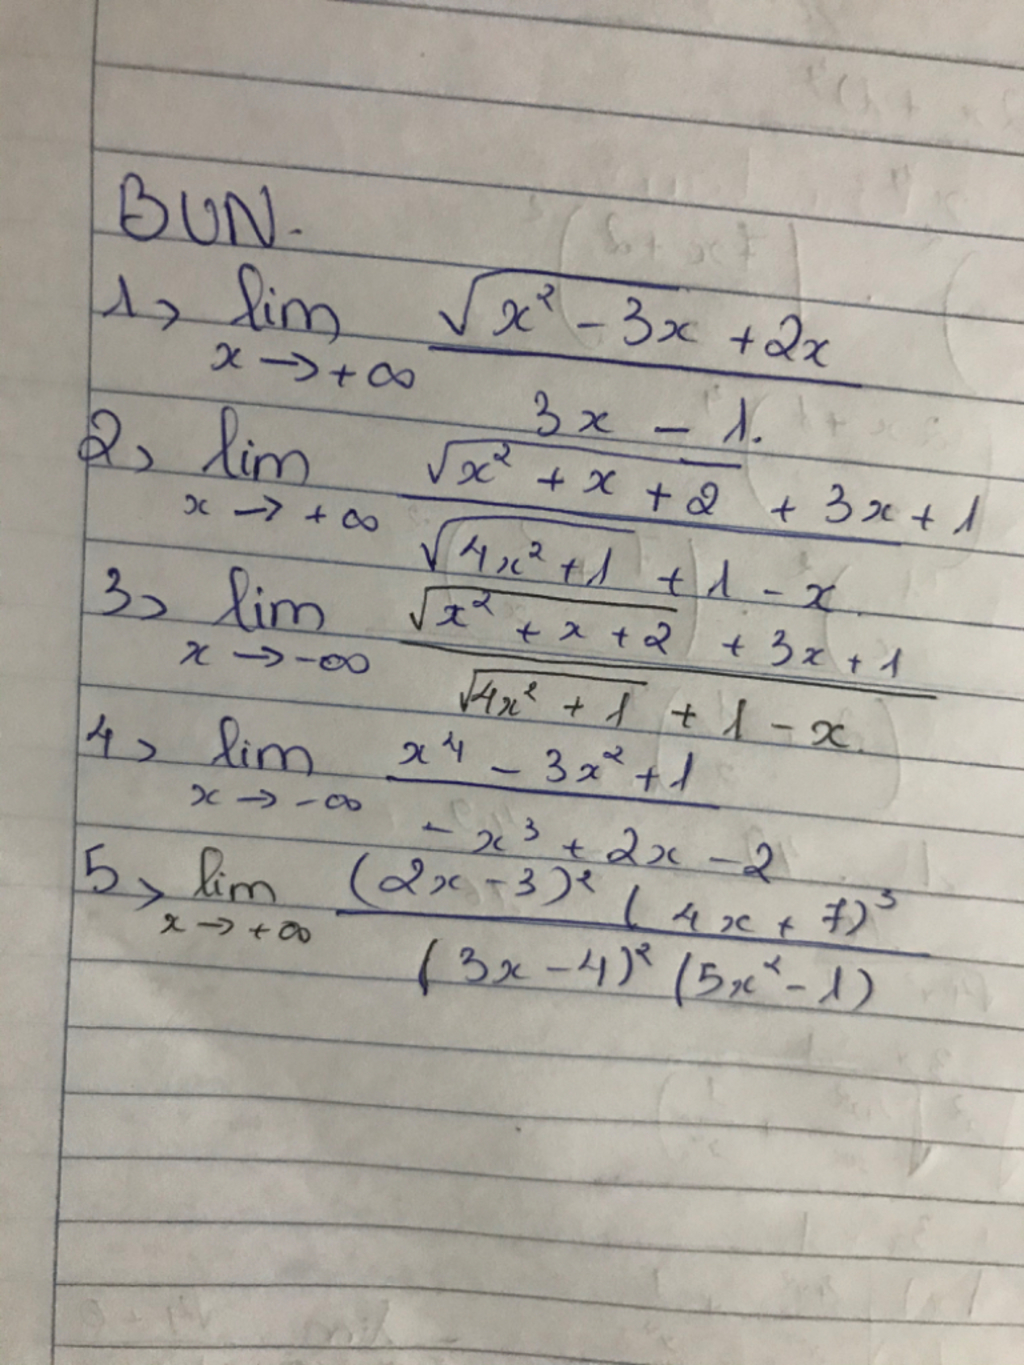 BUN.
1> lim x→+∞ (√(x² - 3x) + 2x) / (3x - 1).
2> lim x→+∞ (√(x² + x + 2) + 3x + 1) / (√(4x² + 1) + 1 - x)
3> lim x→-∞ (√(x² + x + 2) + 3x + 1) / (√(4x² + 1) + 1 - x).
4> lim x→-∞ (x⁴ - 3x² + 1) / (-x³ + 2x - 2)
5> lim x→+∞ ((2x - 3)² (4x + 7)³) / ((3x - 4)² (5x² - 1))